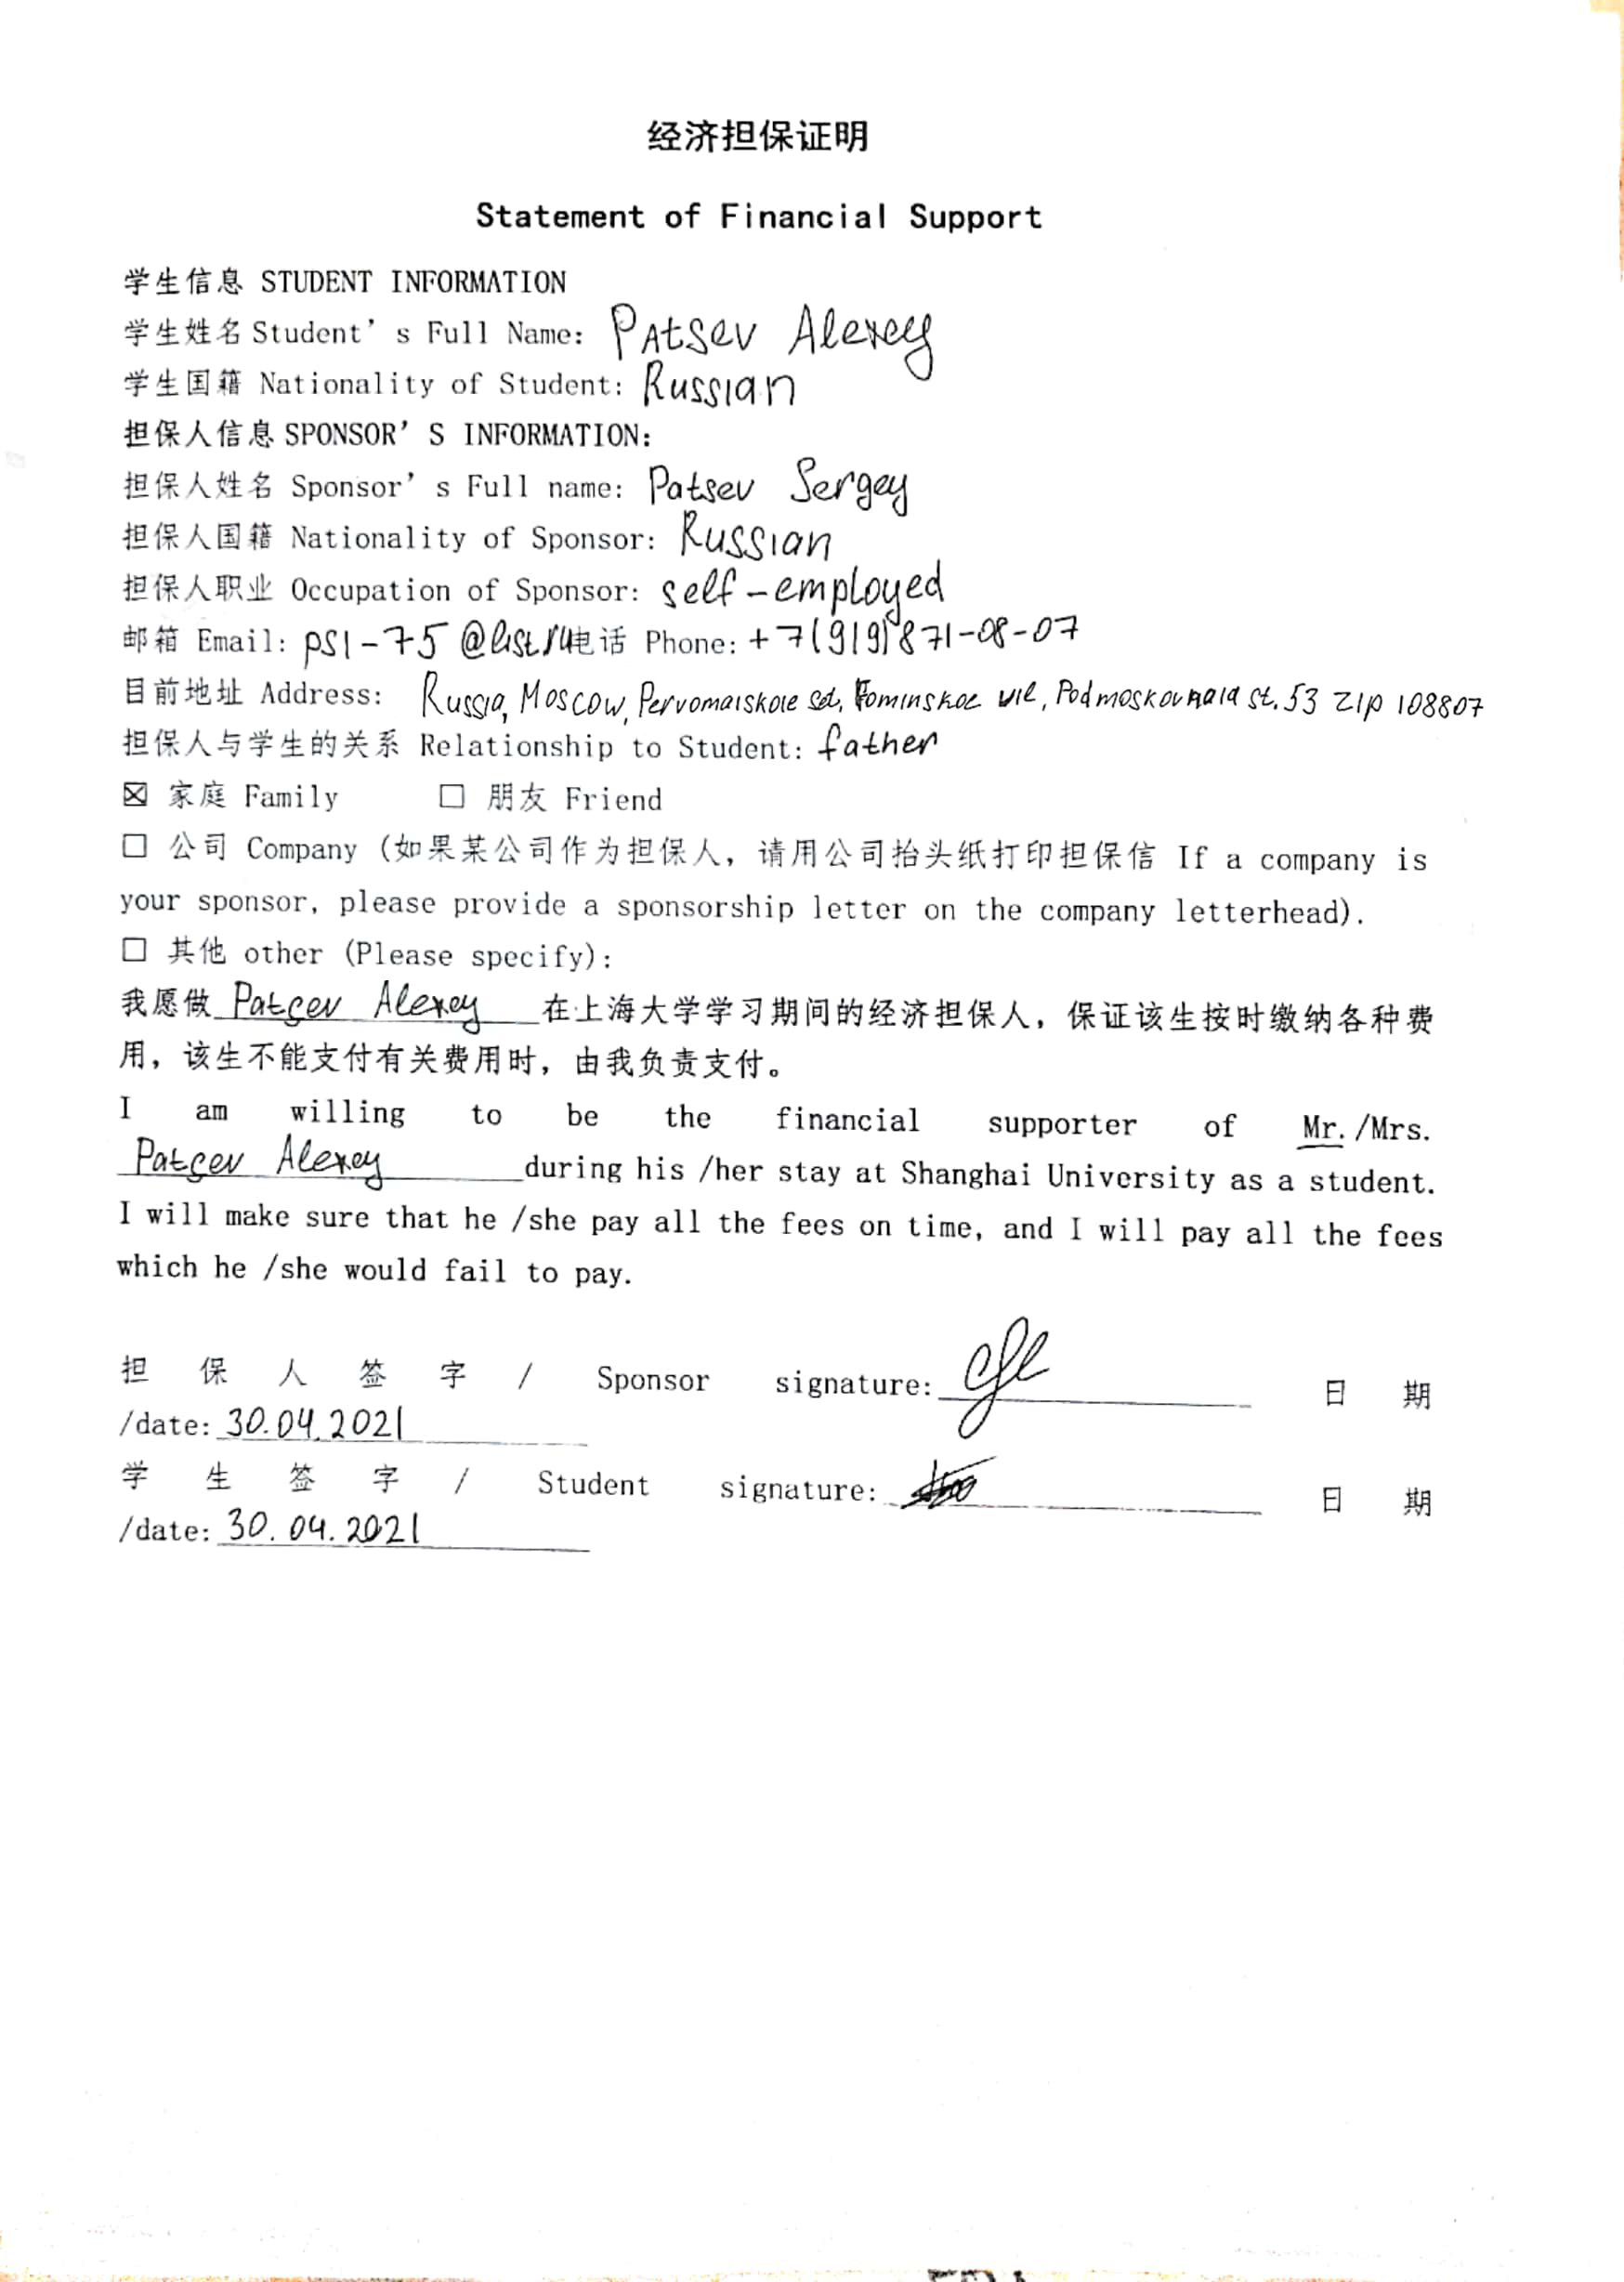 经济担保证明
Statement of Financial Support
学生信息 STUDENT INFORMATION
学生姓名 Student's Full Name: Patsev Alexey
学生国籍 Nationality of Student: Russian
担保人信息 SPONSOR'S INFORMATION:
担保人姓名 Sponsor's Full name: Patsev Sergey
担保人国籍 Nationality of Sponsor: Russian
担保人职业 Occupation of Sponsor: self-employed
邮箱 Email: ps1-75@list.ru 电话 Phone: +7(919)871-08-07
目前地址 Address: Russia, Moscow, Pervomaiskoie set, Fominskoe vil, Podmoskovnaia st. 53 zip 108807
担保人与学生的关系 Relationship to Student: father
☒ 家庭 Family □ 朋友 Friend
□ 公司 Company (如果某公司作为担保人，请用公司抬头纸打印担保信 If a company is
your sponsor, please provide a sponsorship letter on the company letterhead).
□ 其他 other (Please specify):
我愿做 Patsev Alexey 在上海大学学习期间的经济担保人，保证该生按时缴纳各种费
用，该生不能支付有关费用时，由我负责支付。
I am willing to be the financial supporter of Mr./Mrs.
Patsev Alexey during his /her stay at Shanghai University as a student.
I will make sure that he /she pay all the fees on time, and I will pay all the fees
which he /she would fail to pay.
担保人签字/ Sponsor signature: 日期
/date: 30.04.2021
学生签字/ Student signature: 日期
/date: 30.04.2021